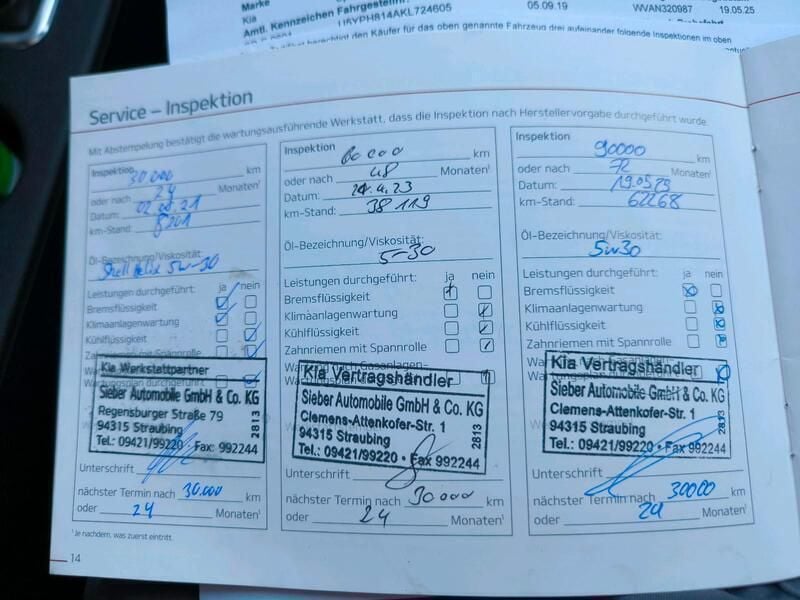 Marke
Kia
Amtl. Kennzeichen Fahrgestellnr.
U5YPH814AKL724605
05.09.19
WVAN320987
19.05.25
berechtigt den Käufer für das oben genannte Fahrzeug drei aufeinander folgende Inspektionen im oben
Service – Inspektion
Mit Abstempelung bestätigt die wartungsausführende Werkstatt, dass die Inspektion nach Herstellervorgabe durchgeführt wurde.
Inspektion
30.000 km
oder nach 24 Monaten¹
Datum: 02.08.21
km-Stand: 8201
Öl-Bezeichnung/Viskosität:
Shell Helix 5w-30
Leistungen durchgeführt: ja nein
Bremsflüssigkeit
Klimaanlagenwartung
Kühlflüssigkeit
Zahnriemen mit Spannrolle
Kia Werkstattpartner
Sieber Automobile GmbH & Co. KG
Regensburger Straße 79
94315 Straubing
Tel.: 09421/99220 · Fax: 992244
2813
Unterschrift
nächster Termin nach 30.000 km
oder 24 Monaten¹
¹Je nachdem, was zuerst eintritt.
14
Inspektion
60000 km
oder nach 48 Monaten¹
Datum: 24.4.23
km-Stand: 38119
Öl-Bezeichnung/Viskosität:
5-30
Leistungen durchgeführt: ja nein
Bremsflüssigkeit
Klimaanlagenwartung
Kühlflüssigkeit
Zahnriemen mit Spannrolle
Kia Vertragshändler
Sieber Automobile GmbH & Co. KG
Clemens-Attenkofer-Str. 1
94315 Straubing
Tel.: 09421/99220 · Fax 992244
2813
Unterschrift
nächster Termin nach 30000 km
oder 24 Monaten¹
Inspektion
90000 km
oder nach 72 Monaten¹
Datum: 19.05.25
km-Stand: 62268
Öl-Bezeichnung/Viskosität:
5w30
Leistungen durchgeführt: ja nein
Bremsflüssigkeit
Klimaanlagenwartung
Kühlflüssigkeit
Zahnriemen mit Spannrolle
Kia Vertragshändler
Sieber Automobile GmbH & Co. KG
Clemens-Attenkofer-Str. 1
94315 Straubing
Tel.: 09421/99220 · Fax 992244
2813
Unterschrift
nächster Termin nach 30000 km
oder 24 Monaten¹